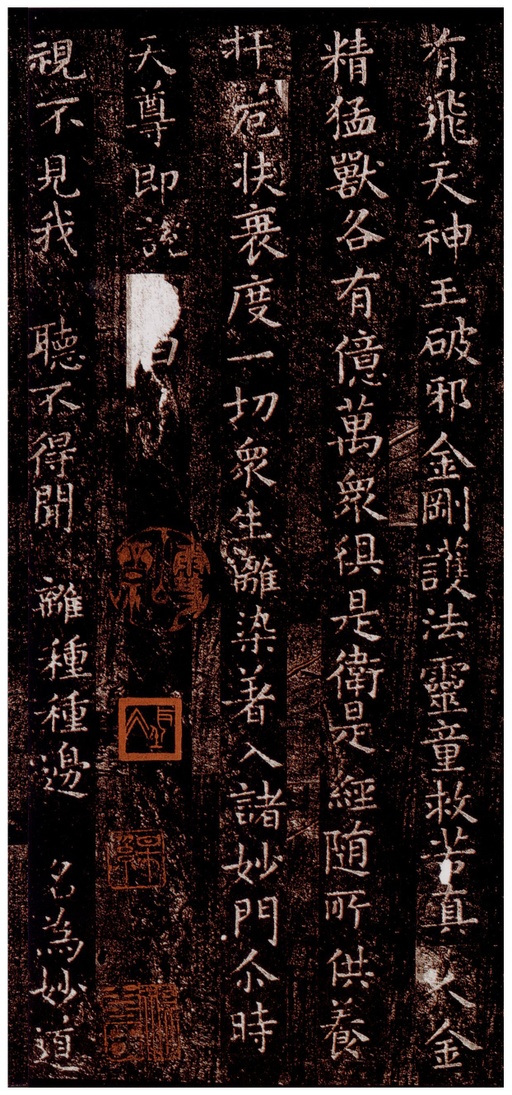 有飛天神王破邪金剛護法靈童救苦真人金
精猛獸各有億萬衆俱是衛是經随所供養
扞厄扶衰度一切衆生離染著入諸妙門尒時
天尊即說曰
視不見我 聽不得聞 離種種邊 名為妙道